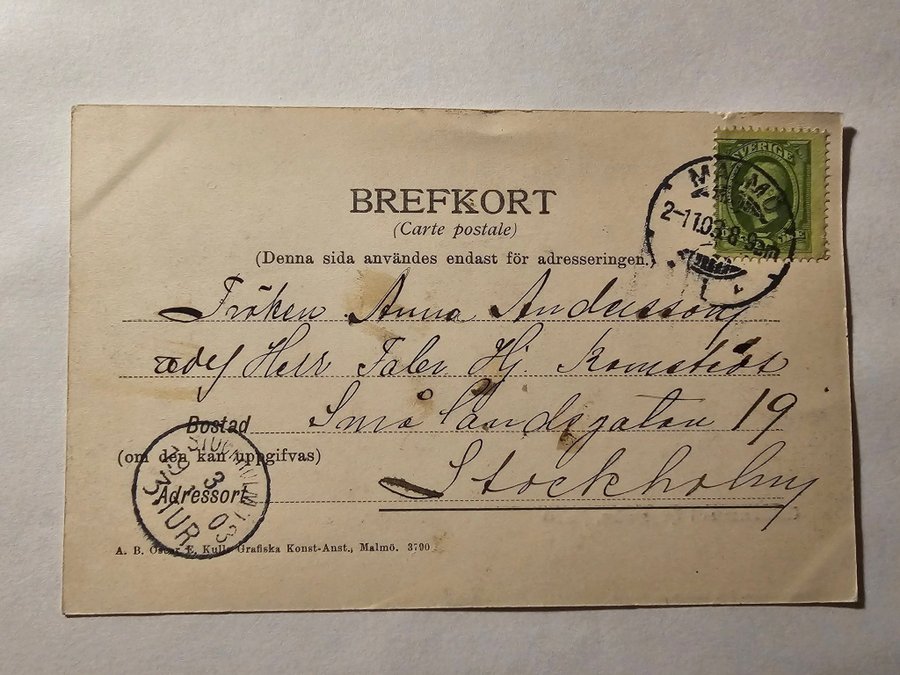 SVERIGE
MALMÖ
2-11.03. 8-9
BREFKORT
(Carte postale)
(Denna sida användes endast för adresseringen.)
Fröken Anna Andersson
Herr Fabr Hj.
Bostad Smålandsgatan 19
(om den kan uppgifvas)
Adressort Stockholm
3
03
A. B. Oscar E. Kulls Grafiska Konst-Anst., Malmö. 3790